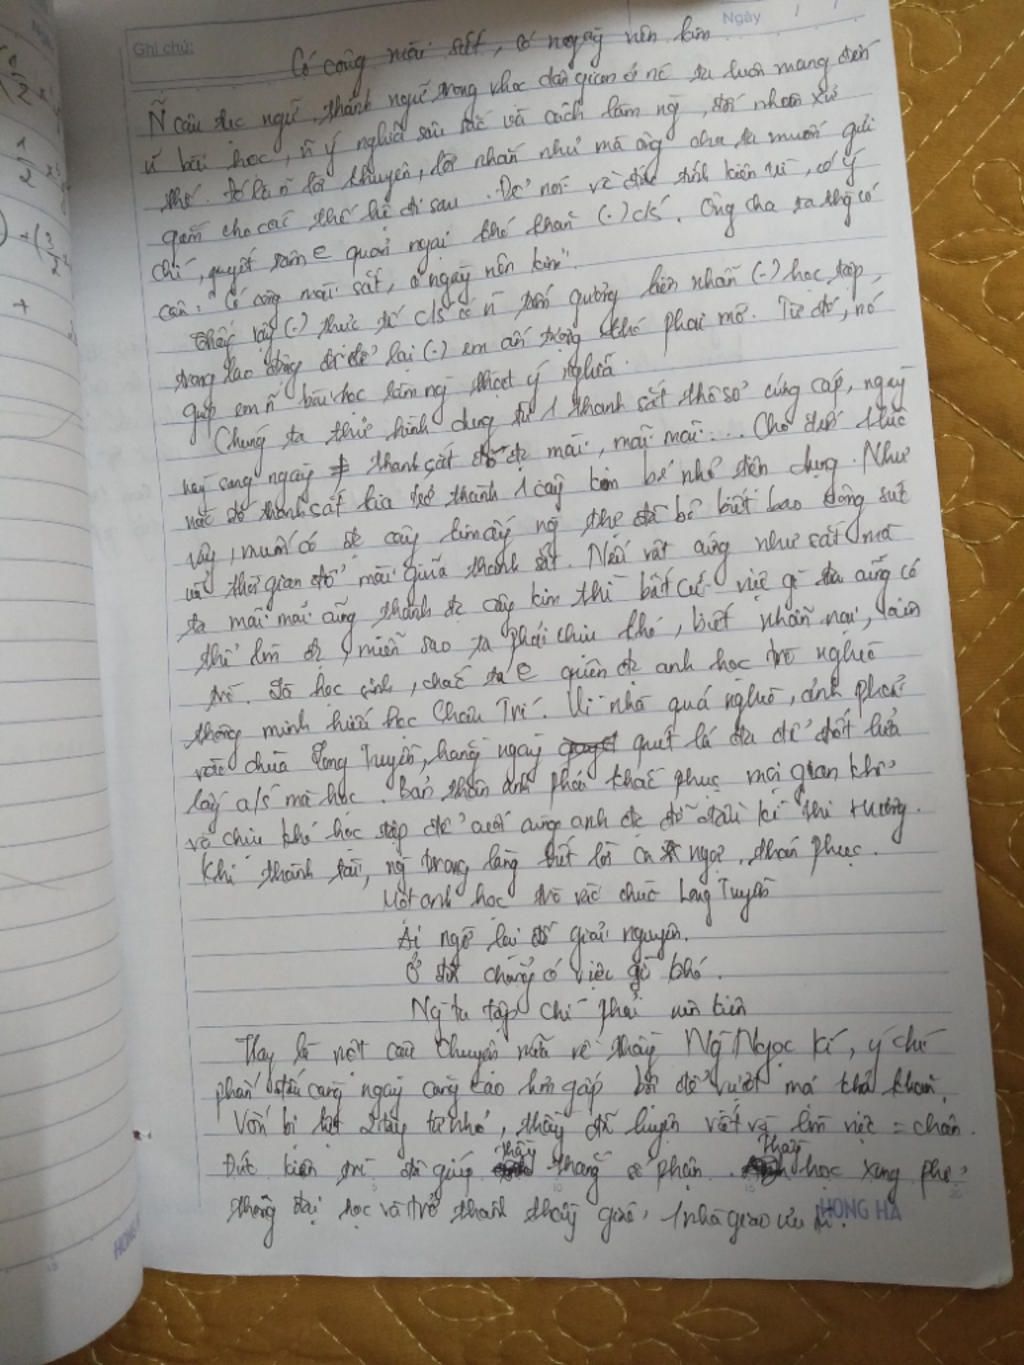 Ghi chú:
Ngày
Có công mài sắt, có ngày nên kim
Ñ câu tục ngữ, thành ngữ trong vhọc dân gian ở nc ta luôn mang đến
ú bài học, ñ ý nghĩa sâu sắc và cách làm ng, đối nhân xử
thế. Đó là ñ lời khuyên, lời nhắn như mà ông cha ta muốn gửi
gắm cho các thế hệ đi sau. Để nói về đức tính kiên trì, có ý
chí, quyết tâm quản ngại khó khăn (.) c/s. Ông cha ta thg có
câu: "Có công mài sắt, có ngày nên kim".
Thật vậy (.) thực tế c/s có ñ tấm gương kiên nhẫn (.) học tập,
trong lao động đã để lại (.) em ấn tượng khó phai mờ. Từ đó, nó
giúp em ñ bài học làm ng thật ý nghĩa.
Chúng ta thử hình dung từ 1 thanh sắt thô sơ cứng cáp, ngày
này sang ngày # thanh sắt đó đc mài, mài mãi... Cho đến lúc
nào đó thanh sắt kia trở thành 1 cây kim bé nhỏ tiện dụng. Như
vậy, muốn có đc cây kim ấy ng thợ đã bỏ biết bao công sức
và thời gian để mài giũa thanh sắt. Nếu vật cứng như sắt mà
ta mài mãi cũng thành đc cây kim thì bất cứ việc gì ta cũng có
thể làm đc, miễn sao ta phải chịu khó, biết nhẫn nại, kiên
trì. Là học sinh, chắc ta quên đc anh học trò nghèo
thông minh hiếu học Châu Trí. Vì nhà quá nghèo, anh phải
vào chùa Long Tuyền, hàng ngày quét lá đa để đốt lửa
lấy a/s mà học. Bản thân anh phải khắc phục mọi gian khổ
và chịu khó học tập để cuối cùng anh đc đỗ đầu kì thi Hương.
Khi thành tài, ng trong làng hết lời ca ngợi, thán phục.
Một anh học trò vào chùa Long Tuyền
Ai ngờ lại đỗ giải nguyên.
Ở đời chẳng có việc gì khó.
Ng ta tập chí phải cần kiên
Hay là một câu chuyện nữa về thầy Ng Ngọc Kí, ý chí
phấn đấu càng ngày càng cao hơn gấp bội để vượt mọi khó khăn.
Vốn bị liệt 2 tay từ nhỏ, thầy đã luyện viết và làm việc = chân.
Đức kiên trì đã giúp thầy thắng số phận. thầy học xong phổ
thông đại học và trở thành thầy giáo, 1 nhà giáo ưu tú.
HONG HA